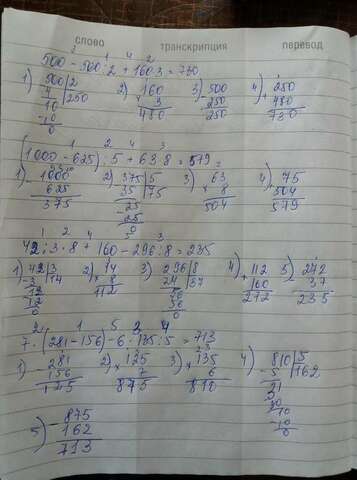 слово транскрипция перевод
2 1 4 2
500 - 500 : 2 + 160·3 = 730
1) 500 | 2 2) 160 3) 500 4) 250
4 250 × 3 - 250 + 480
10 480 250 730
-10
0
1 2 4 3
(1000 - 625) : 5 + 63·8 = 579 =
1) 1000 2) 375 | 5 3) 63 4) 75
- 625 35 75 × 8 + 504
375 -25 504 579
25
0
1 2 4 5 3
42 : 3 · 8 + 160 - 296 : 8 = 235
1) 42 | 3 2) 14 3) 296 | 8 4) 112 5) 272
-3 14 × 8 24 37 + 160 - 37
12 112 56 212 235
12 56
0 0
2 1 5 3 4
7 · (281 - 156) - 6 · 135 : 5 = 713
1) 281 2) 125 3) 135 4) 810 | 5
- 156 × 7 × 6 - 5 162
125 875 810 31
30
10
-10
0
5) - 875
162
713